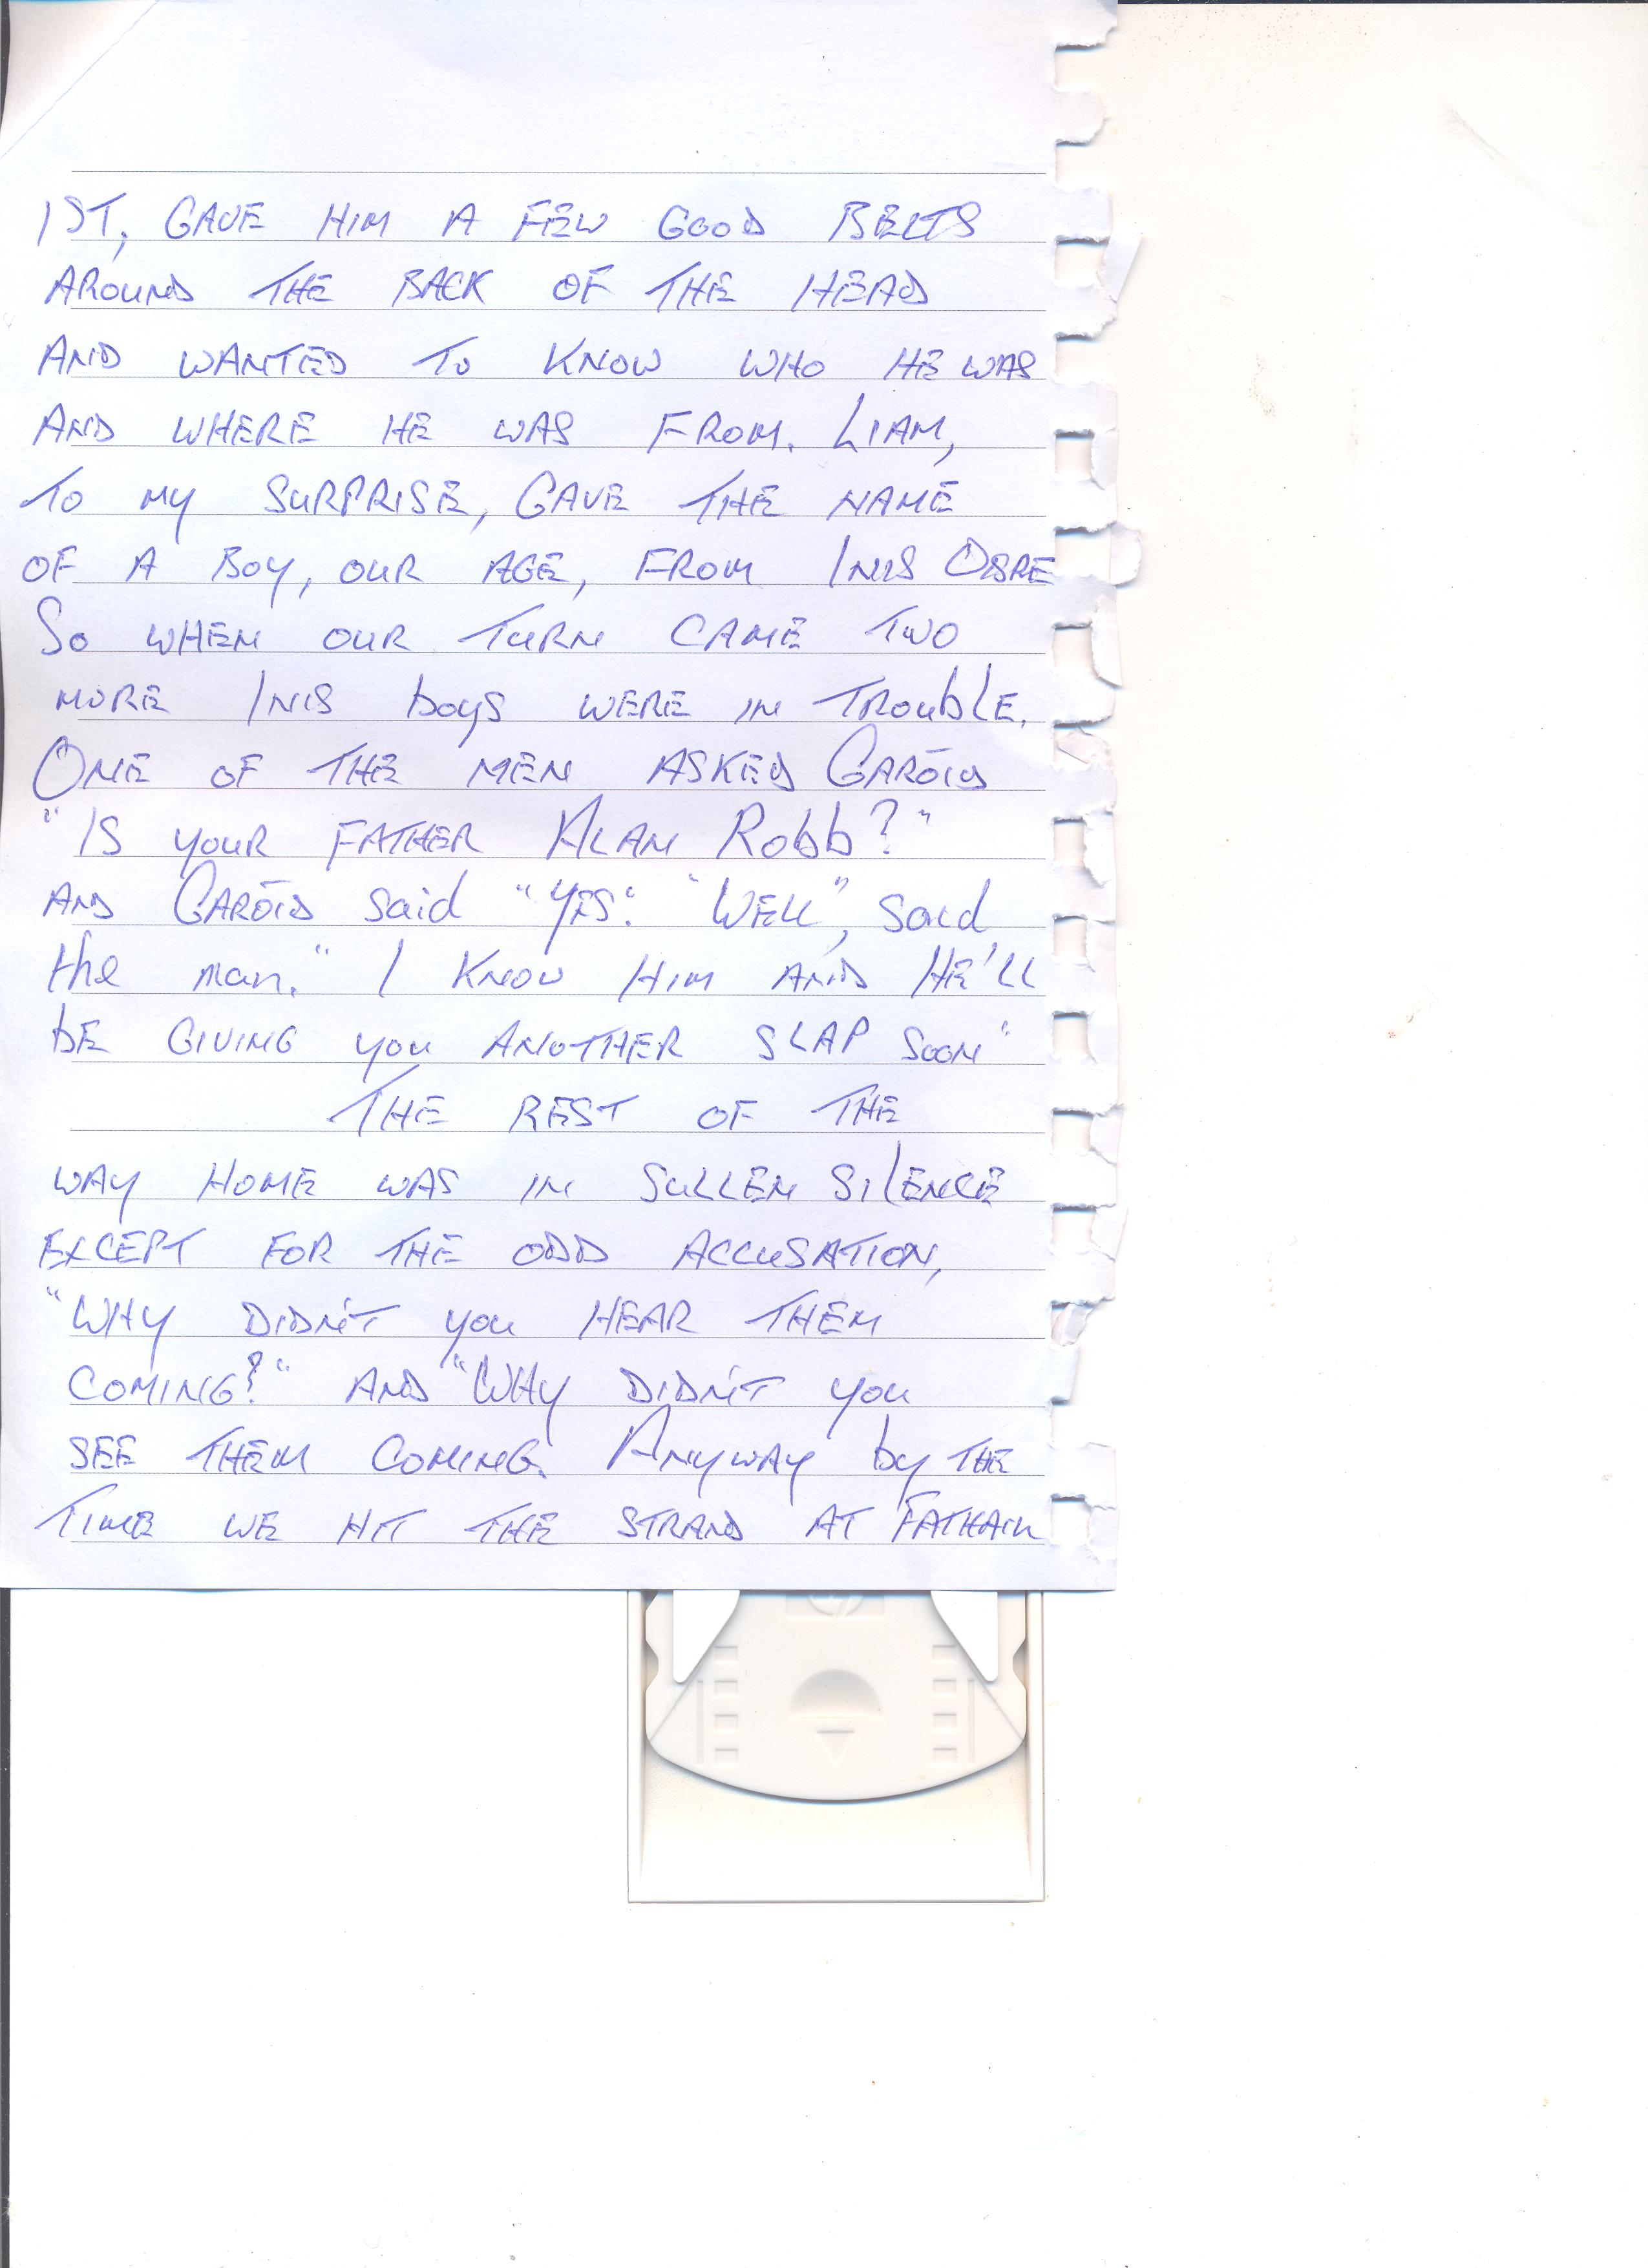 1ST, GAVE HIM A FEW GOOD BELTS
AROUND THE BACK OF THE HEAD
AND WANTED TO KNOW WHO HE WAS
AND WHERE HE WAS FROM. LIAM,
TO MY SURPRISE, GAVE THE NAME
OF A BOY, OUR AGE, FROM INIS
SO WHEN OUR TURN CAME TWO
MORE INIS boys WERE IN TROUbLE.
ONE OF THE MEN ASKED GARÓID
"IS YOUR FATHER ALAN Robb?"
AND GARÓID said "YES". "WELL", said
the man. "I KNOW HIM AND HE'LL
bE GIVING you ANOTHER SLAP SOON"
THE REST OF THE
WAY HOME WAS IN SULLEN SILENCE
EXCEPT FOR THE ODD ACCUSATION,
"WHY DIDN'T YOU HEAR THEM
COMING?" AND "WHY DIDN'T YOU
SEE THEM COMING. ANYWAY by THE
TIME WE HIT THE STRAND AT